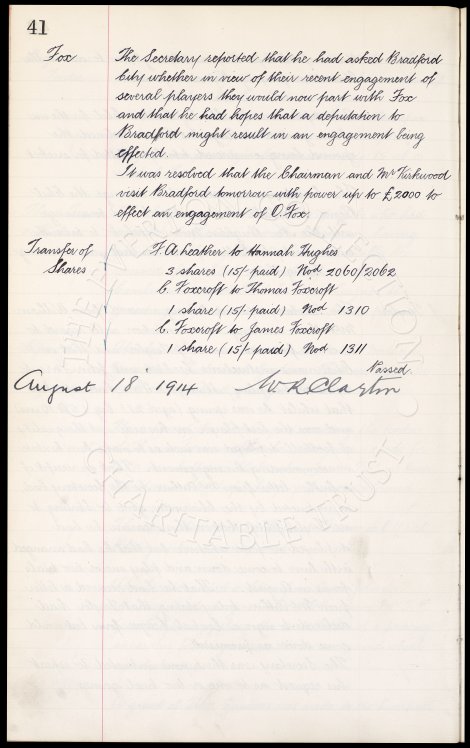 41
Fox The Secretary reported that he had asked Bradford
City whether in view of their recent engagement of
several players they would now part with Fox
and that he had hopes that a deputation to
Bradford might result in an engagement being
effected.
It was resolved that the Chairman and Mr Kirkwood
visit Bradford tomorrow with power up to £2000 to
effect an engagement of O. Fox.
Transfer of F. A. Leather to Hannah Hughes
Shares 3 shares (15/- paid) Nod 2060/2062
C. Foxcroft to Thomas Foxcroft
1 share (15/- paid) Nod 1310
C. Foxcroft to James Foxcroft
1 share (15/- paid) Nod 1311
Passed.
August 18 1914 W. R. Clayton
THE EVERTON COLLECTION
CHARITABLE TRUST